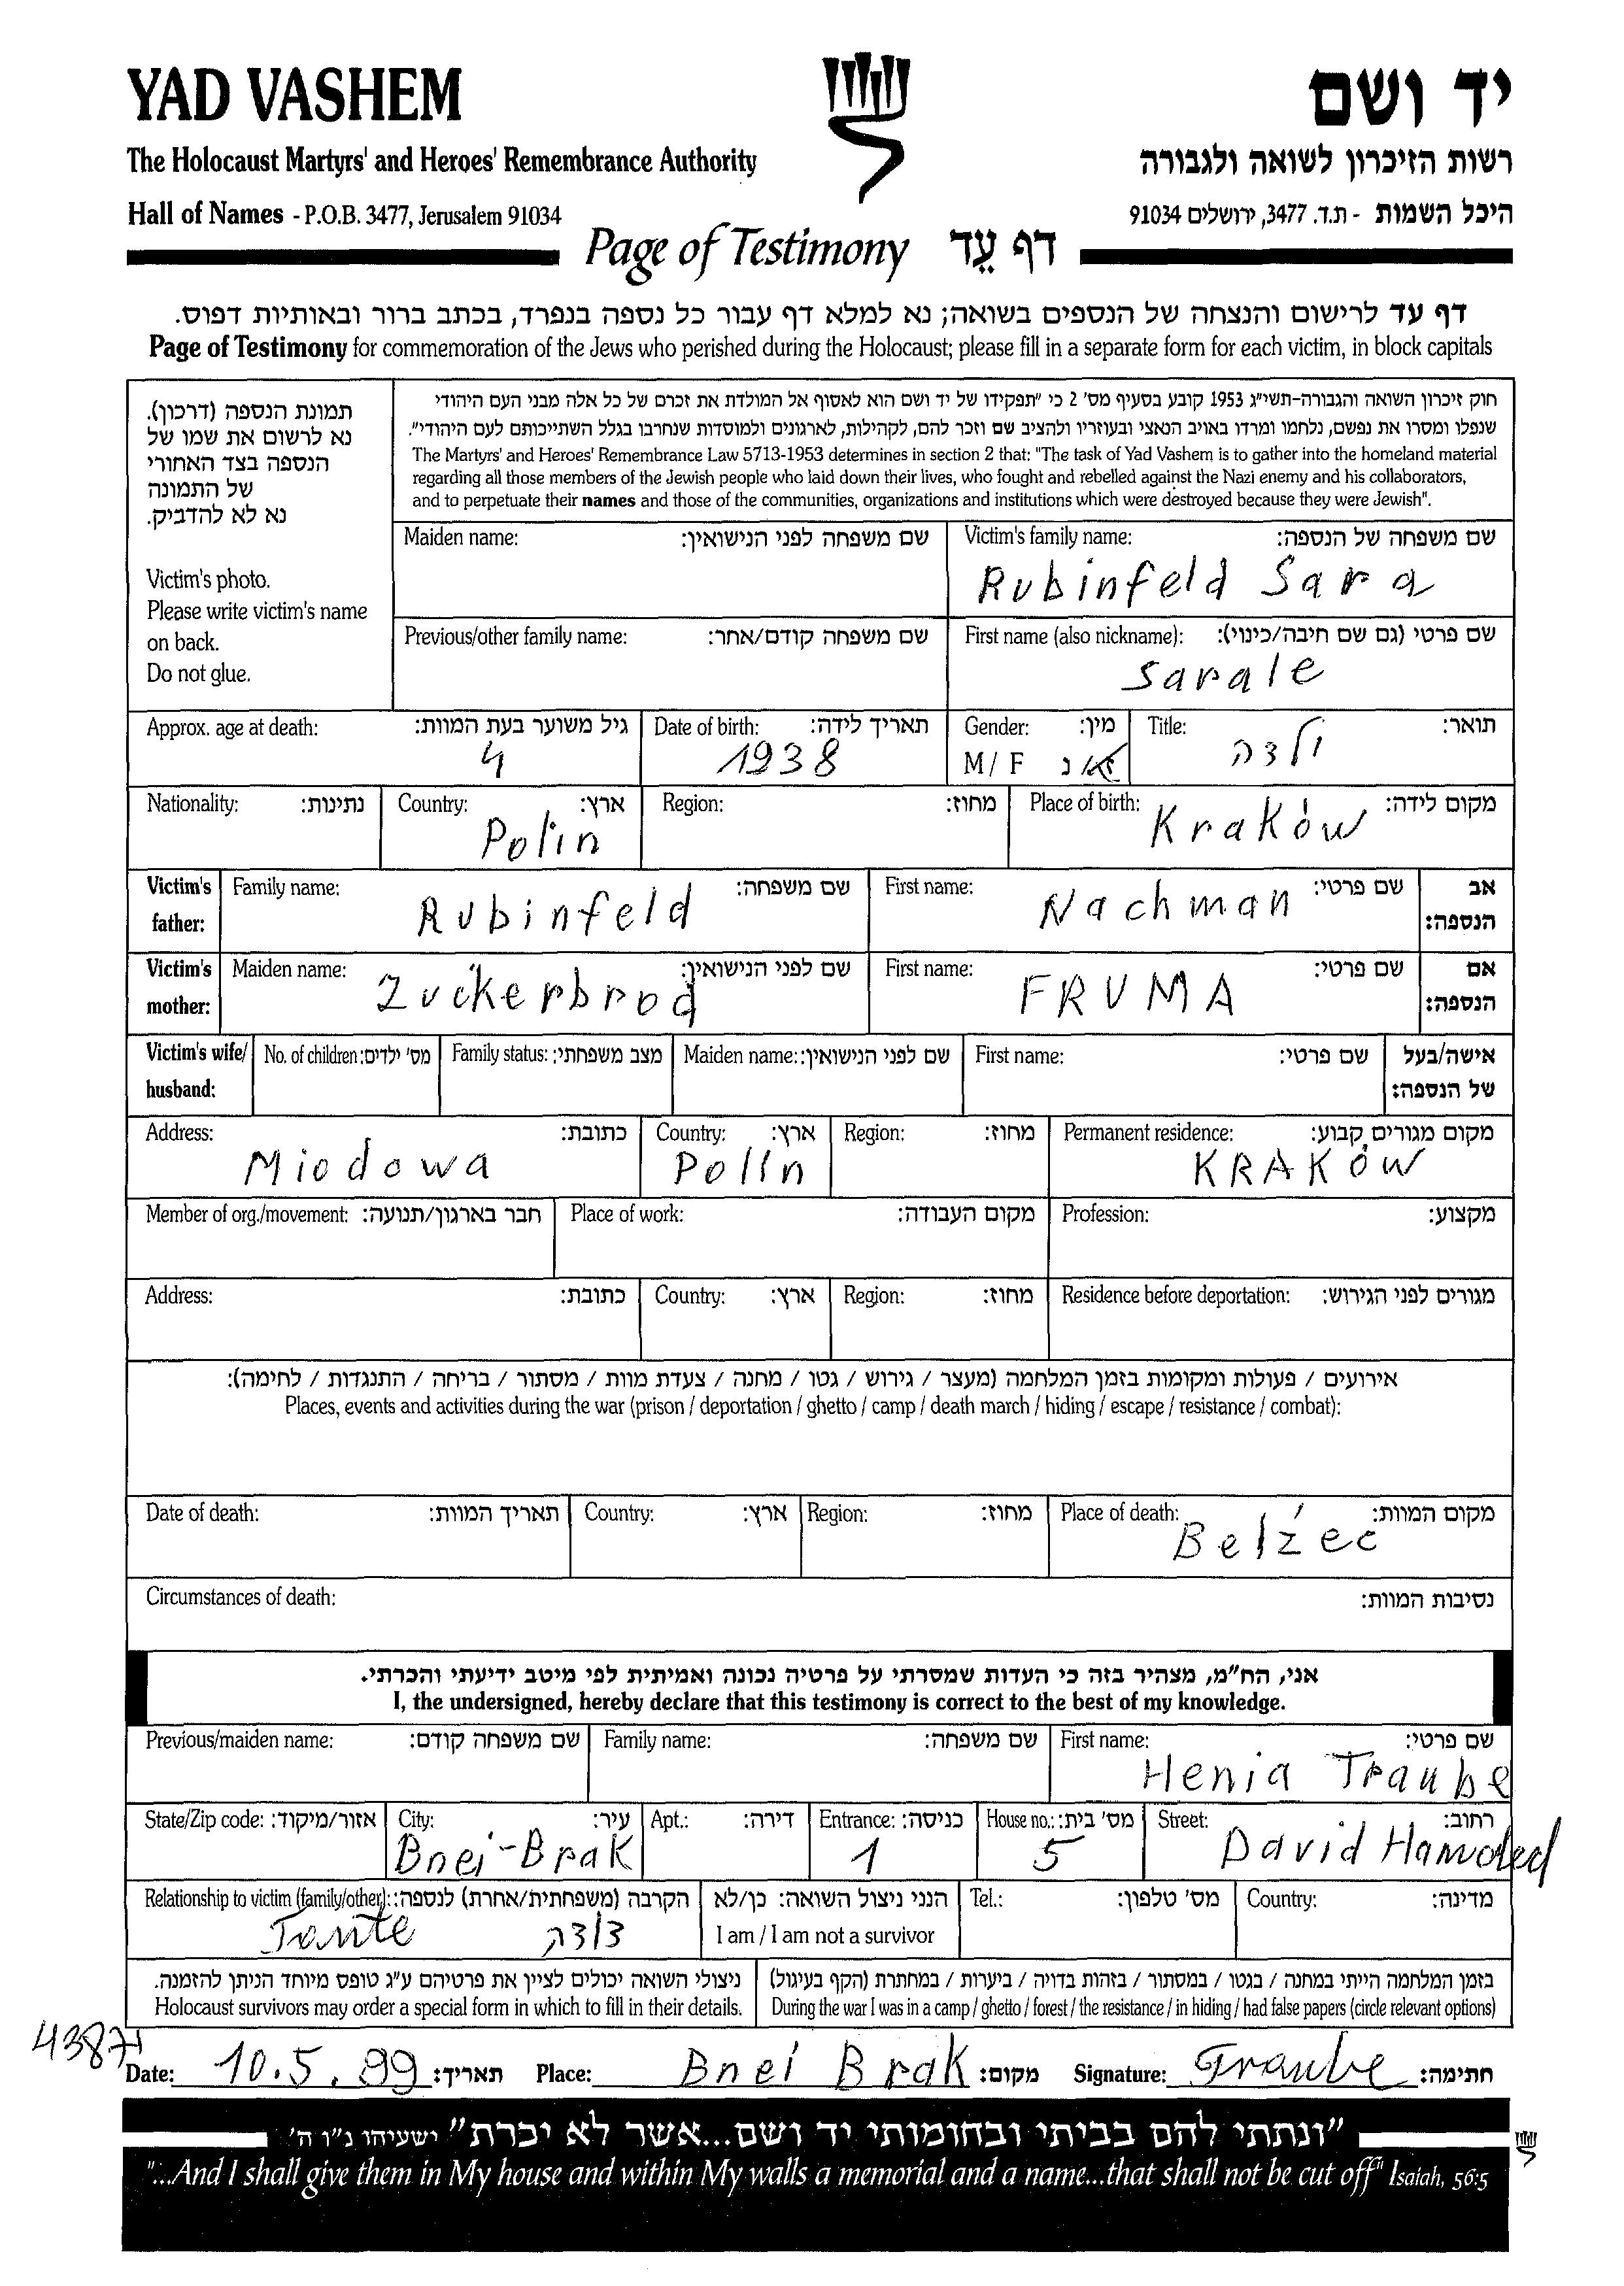 YAD VASHEM
יד ושם
The Holocaust Martyrs' and Heroes' Remembrance Authority
רשות הזיכרון לשואה ולגבורה
Hall of Names - P.O.B. 3477, Jerusalem 91034
היכל השמות - ת.ד. 3477, ירושלים 91034
Page of Testimony דף עֵד
דף עד לרישום והנצחה של הנספים בשואה; נא למלא דף עבור כל נספה בנפרד, בכתב ברור ובאותיות דפוס.
Page of Testimony for commemoration of the Jews who perished during the Holocaust; please fill in a separate form for each victim, in block capitals
תמונת הנספה (דרכון).
נא לרשום את שמו של
הנספה בצד האחורי
של התמונה
נא לא להדביק.
Victim's photo.
Please write victim's name
on back.
Do not glue.
חוק זיכרון השואה והגבורה-תשי"ג 1953 קובע בסעיף מס' 2 כי "תפקידו של יד ושם הוא לאסוף אל המולדת את זכרם של כל אלה מבני העם היהודי
שנפלו ומסרו את נפשם, נלחמו ומרדו באויב הנאצי ובעוזריו ולהציב שם וזכר להם, לקהילות, לארגונים ולמוסדות שנחרבו בגלל השתייכותם לעם היהודי".
The Martyrs' and Heroes' Remembrance Law 5713-1953 determines in section 2 that: "The task of Yad Vashem is to gather into the homeland material
regarding all those members of the Jewish people who laid down their lives, who fought and rebelled against the Nazi enemy and his collaborators,
and to perpetuate their names and those of the communities, organizations and institutions which were destroyed because they were Jewish".
Maiden name: שם משפחה לפני הנישואין:
Victim's family name: שם משפחה של הנספה:
Rubinfeld Sara
Previous/other family name: שם משפחה קודם/אחר:
First name (also nickname): שם פרטי (גם שם חיבה/כינוי):
Sarale
Approx. age at death: גיל משוער בעת המוות:
4
Date of birth: תאריך לידה:
1938
Gender: מין:
M / F ז / נ
Title: תואר:
ילדה
Nationality: נתינות:
Country: ארץ:
Polin
Region: מחוז:
Place of birth: מקום לידה:
Kraków
Victim's father:
Family name: שם משפחה:
Rubinfeld
First name: שם פרטי:
Nachman
אב הנספה:
Victim's mother:
Maiden name: שם לפני הנישואין:
Zuckerbrod
First name: שם פרטי:
FRUMA
אם הנספה:
Victim's wife/ husband:
No. of children: מס' ילדים:
Family status: מצב משפחתי:
Maiden name: שם לפני הנישואין:
First name: שם פרטי:
אישה/בעל של הנספה:
Address: כתובת:
Miodowa
Country: ארץ:
Polin
Region: מחוז:
Permanent residence: מקום מגורים קבוע:
KRAKÓW
Member of org./movement: חבר בארגון/תנועה:
Place of work: מקום העבודה:
Profession: מקצוע:
Address: כתובת:
Country: ארץ:
Region: מחוז:
Residence before deportation: מגורים לפני הגירוש:
אירועים / פעולות ומקומות בזמן המלחמה (מעצר / גירוש / גטו / מחנה / צעדת מוות / מסתור / בריחה / התנגדות / לחימה):
Places, events and activities during the war (prison / deportation / ghetto / camp / death march / hiding / escape / resistance / combat):
Date of death: תאריך המוות:
Country: ארץ:
Region: מחוז:
Place of death: מקום המוות:
Belżec
Circumstances of death: נסיבות המוות:
אני, הח"מ, מצהיר בזה כי העדות שמסרתי על פרטיה נכונה ואמיתית לפי מיטב ידיעתי והכרתי.
I, the undersigned, hereby declare that this testimony is correct to the best of my knowledge.
Previous/maiden name: שם משפחה קודם:
Family name: שם משפחה:
First name: שם פרטי:
Henia Traube
State/Zip code: אזור/מיקוד:
City: עיר:
Bnei-Brak
Apt.: דירה:
Entrance: כניסה:
1
House no.: מס' בית:
5
Street: רחוב:
David Hameled
Relationship to victim (family/other): הקרבה (משפחתית/אחרת) לנספה:
Tante דודה
הנני ניצול השואה: כן/לא
I am / I am not a survivor
Tel.: מס' טלפון:
Country: מדינה:
ניצולי השואה יכולים לציין את פרטיהם ע"ג טופס מיוחד הניתן להזמנה.
Holocaust survivors may order a special form in which to fill in their details.
בזמן המלחמה הייתי במחנה / בגטו / במסתור / בזהות בדויה / ביערות / במחתרת (הקף בעיגול)
During the war I was in a camp / ghetto / forest / the resistance / in hiding / had false papers (circle relevant options)
Date: 10.5.99 תאריך: Place: Bnei Brak מקום: Signature: Traube חתימה:
"ונתתי להם בביתי ובחומותי יד ושם...אשר לא יכרת" ישעיהו נ"ו ה'
"...And I shall give them in My house and within My walls a memorial and a name...that shall not be cut off" Isaiah, 56:5